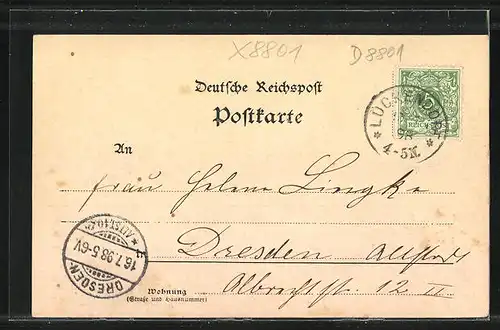 X8801 D8801
Deutsche Reichspost
Postkarte
LÜCKENDORF
98
4-5N.
An
Frau Helene Lingke
in
Dresden Altstadt
Albrechtstr. 12 II
DRESDEN-ALTST.
16.7.98.5-6V
Wohnung
(Straße und Hausnummer)